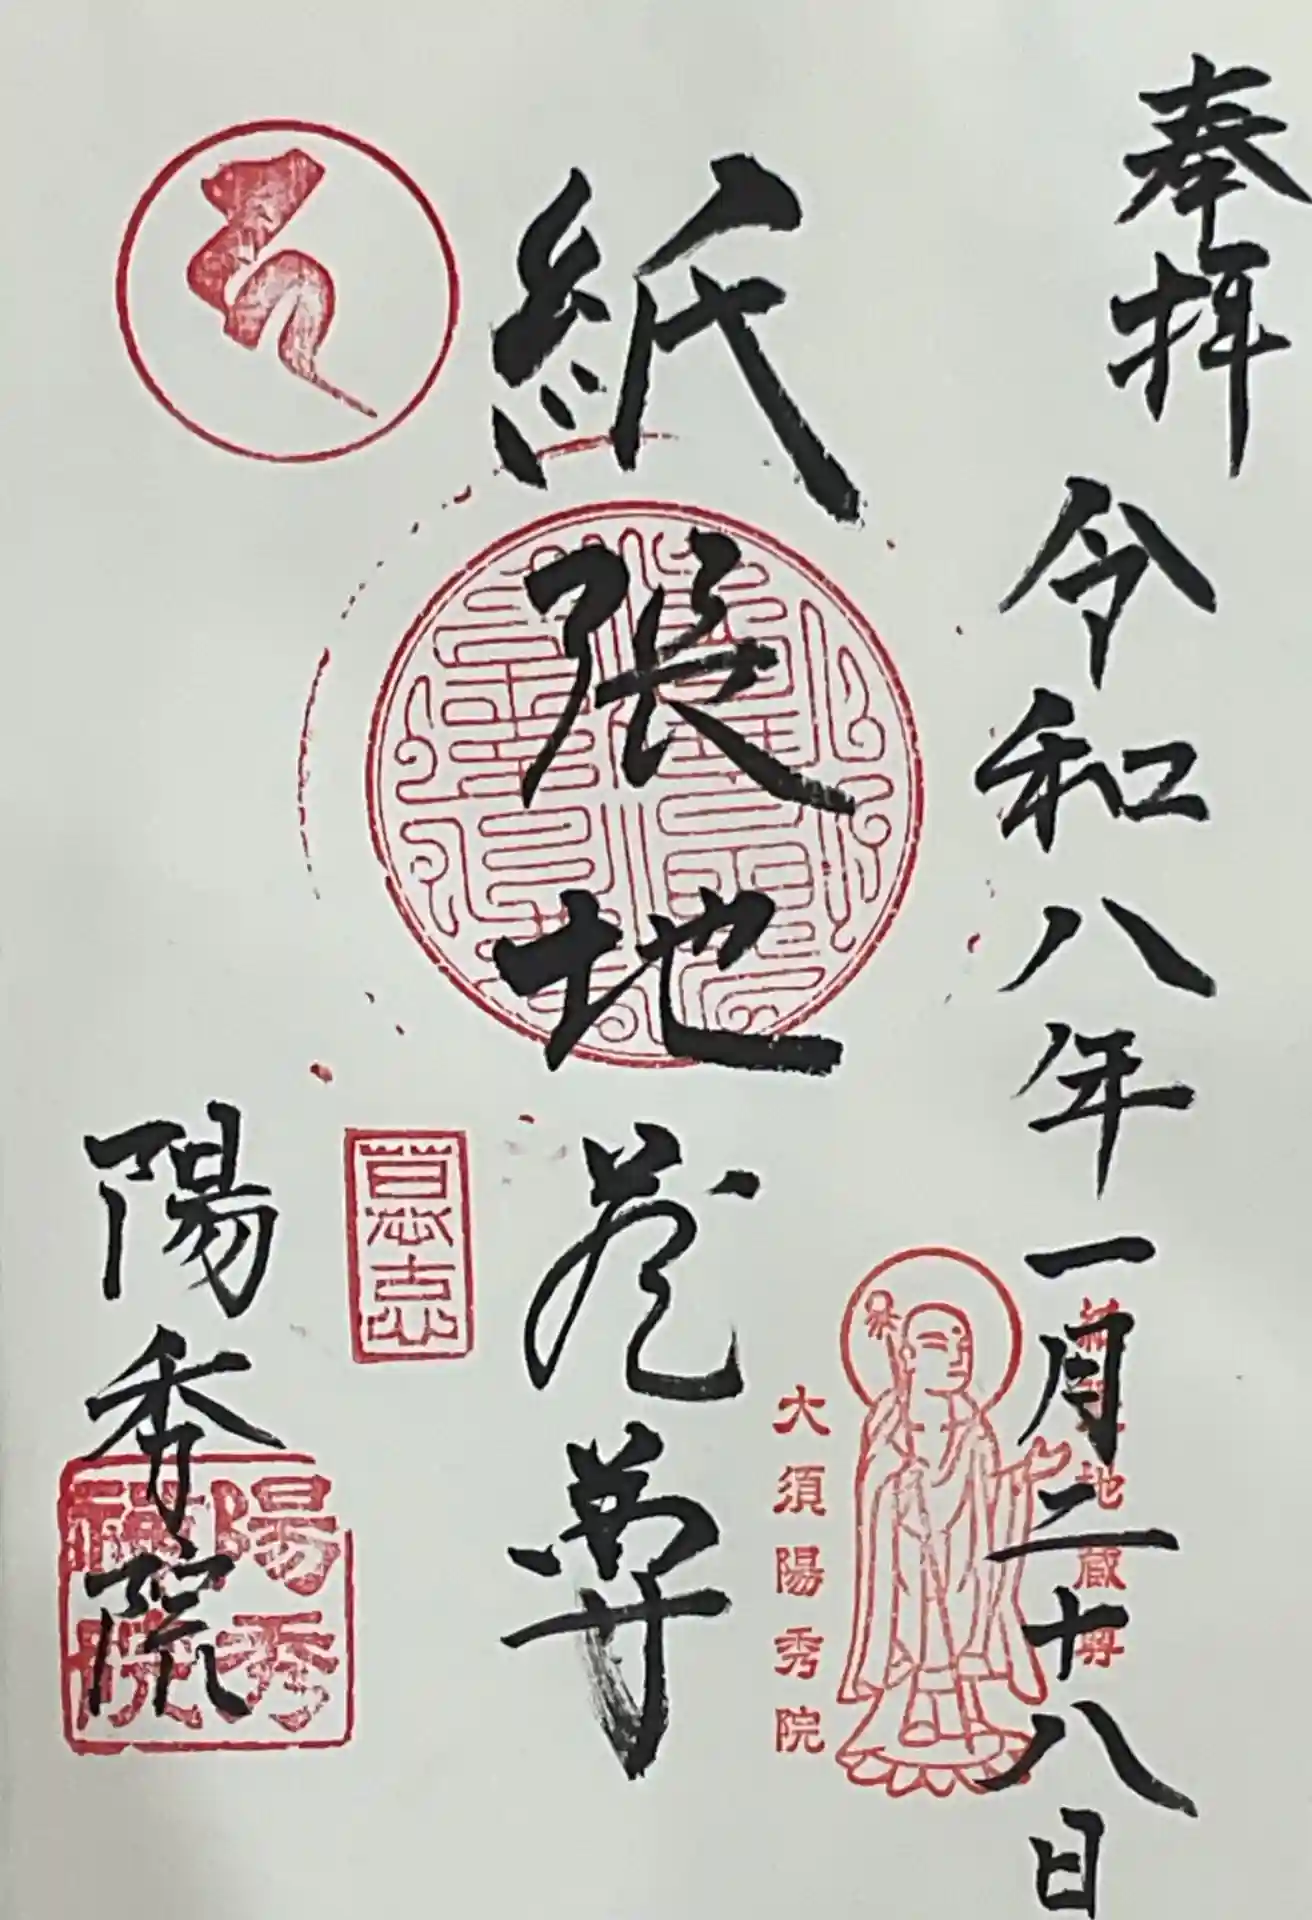 奉拝
令和八年一月二十八日
地蔵尊
大須陽秀院
紙張地蔵尊
陽秀院
陽秀
禅院